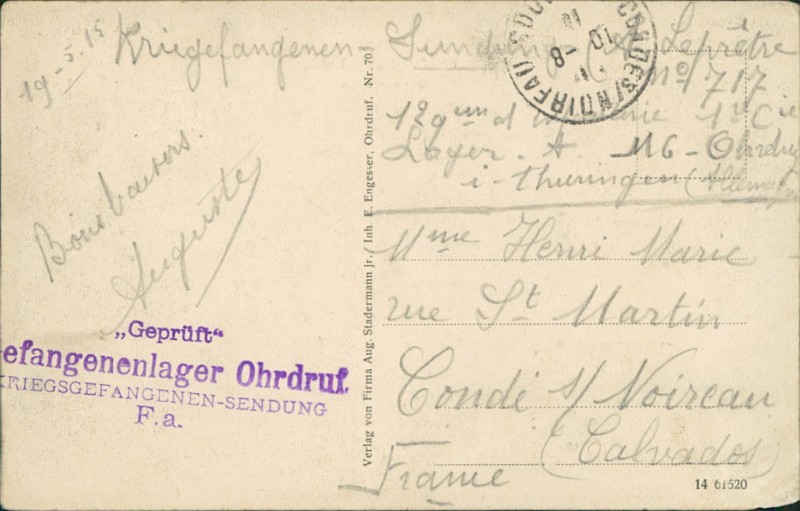 19-5-15
Kriegefangenen Sendung (A Leprêtre
No 717
129 d 1re Cie
Lager. A. 116 - Ohrdruf
i-Thuringen (Allemagne
Bons baisers.
Auguste
Mme Henri Marie
rue St Martin
Condé s/ Noireau
(Calvados)
France
„Geprüft“
efangenenlager Ohrdruf.
KRIEGSGEFANGENEN-SENDUNG
F.a.
Verlag von Firma Aug. Stadermann jr., Inh. E. Engesser, Ohrdruf. Nr. 70
CONDE S/ NOIREAU
14 61520